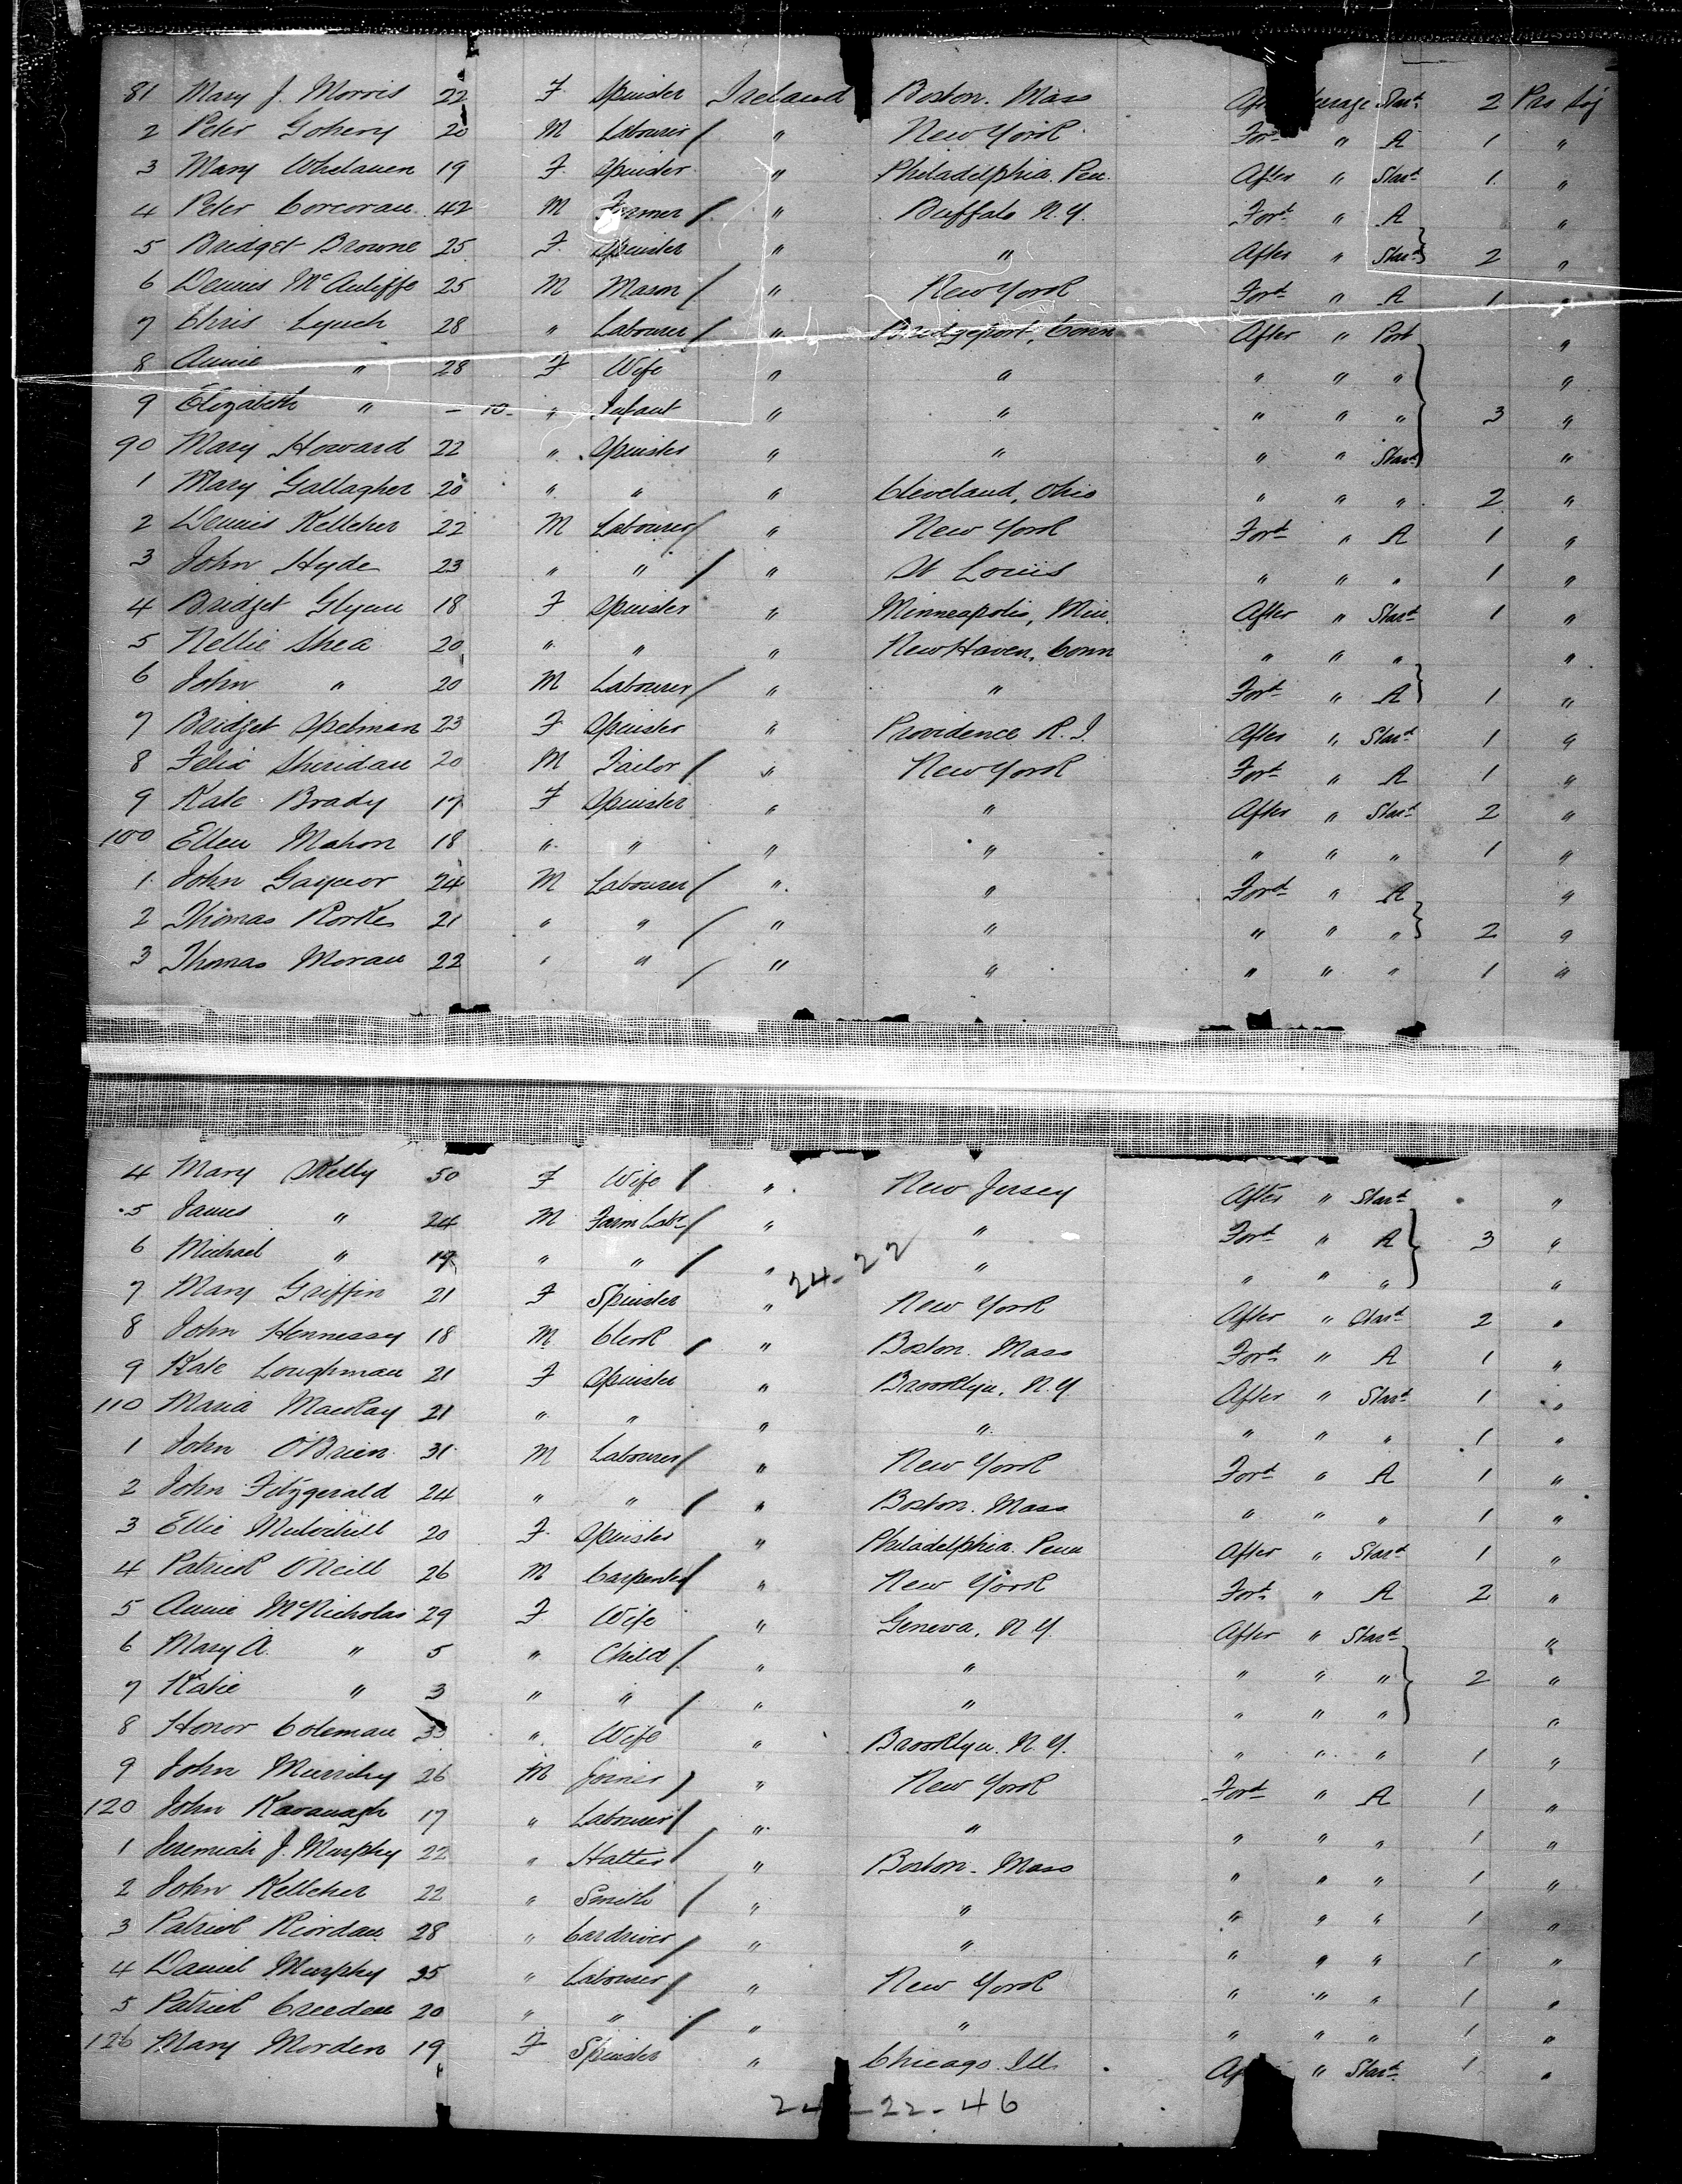 81 Mary J. Morris 22 F Spinster Ireland Boston. Mass Aft erage Star.d 2 Pro Soj
2 Peter Gohery 20 M Labourer / " New York Ford " A 1 "
3 Mary Whelauen 19 F Spinster " Philadelphia. Pen. After " Stard 1 "
4 Peter Corcoran 42 M Farmer / " Buffalo N.Y. Ford " A "
5 Bridget Browne 25 F Spinster " " After " Stard 2 "
6 Dennis McAuliffe 25 M Mason / " New York Ford " A 1 "
7 Chris Lynch 28 " Labourer / " Bridgeport, Conn After " Port "
8 Annie " 28 F Wife " " " " " "
9 Elizabeth " - 10 - " Infant " " " " " 3 "
90 Mary Howard 22 " Spinster " " " " Stard "
1 Mary Gallagher 20 " " " Cleveland, Ohio " " " 2 "
2 Dennis Kelleher 22 M Labourer / " New York Ford " A 1 "
3 John Hyde 23 " " / " St Louis " " " 1 "
4 Bridget Glynn 18 F Spinster " Minneapolis, Min. After " Stard 1 "
5 Nellie Shea 20 " " " New Haven, Conn " " " "
6 John " 20 M Labourer / " " Ford " A 1 "
7 Bridget Spelman 23 F Spinster " Providence R.I. After " Stard 1 "
8 Felix Sheridan 20 M Tailor / " New York Ford " A 1 "
9 Kate Brady 17 F Spinster " " After " Stard 2 "
100 Ellen Mahon 18 " " " " " " " 1 "
1 John Gaynor 24 M Labourer / " " Ford " A "
2 Thomas Rorke 21 " " / " " " " " 2 "
3 Thomas Moran 22 " " / " " " " " 1 "
4 Mary Skelly 50 F Wife / " New Jersey After " Stard "
5 James " 24 M Farm Labr / " " Ford " A 3 "
6 Michael " 19 " " / " " " " " "
24-22
7 Mary Griffin 21 F Spinster " New York After " Stard 2 "
8 John Hennessy 18 M Clerk / " Boston. Mass Ford " A 1 "
9 Kate Loughman 21 F Spinster " Brooklyn. N.Y After " Stard 1 "
110 Maria 21 " " " " " " " 1 "
1 John O'Brien 31 M Labourer / " New York Ford " A 1 "
2 John Fitzgerald 24 " " / " Boston. Mass " " " 1 "
3 Ellie Mulvihill 20 F Spinster " Philadelphia. Penn After " Stard 1 "
4 Patrick O'Neill 26 M Carpenter / " New York Ford " A 2 "
5 Annie McNicholas 29 F Wife " Geneva, N.Y. After " Stard "
6 Mary A. " 5 " Child / " " " " " 2 "
7 Katie " 3 " " / " " " " " "
8 Honor Coleman 33 " Wife " Brooklyn. N.Y. " " " 1 "
9 John 26 M Joiner / " New York Ford " A 1 "
120 John Kavanagh 17 " Labourer / " " " " " 1 "
1 Jeremiah J. Murphy 22 " Hatter / " Boston - Mass " " " 1 "
2 John Kelleher 22 " Smith / " " " " " 1 "
3 Patrick Riordan 28 " Cardriver / " " " " " 1 "
4 Daniel Murphy 35 " Labourer / " New York " " " 1 "
5 Patrick Creedon 20 " " / " " " " " 1 "
126 Mary Morden 19 F Spinster " Chicago. Ill. Af " Stard 1 "
24-22-46